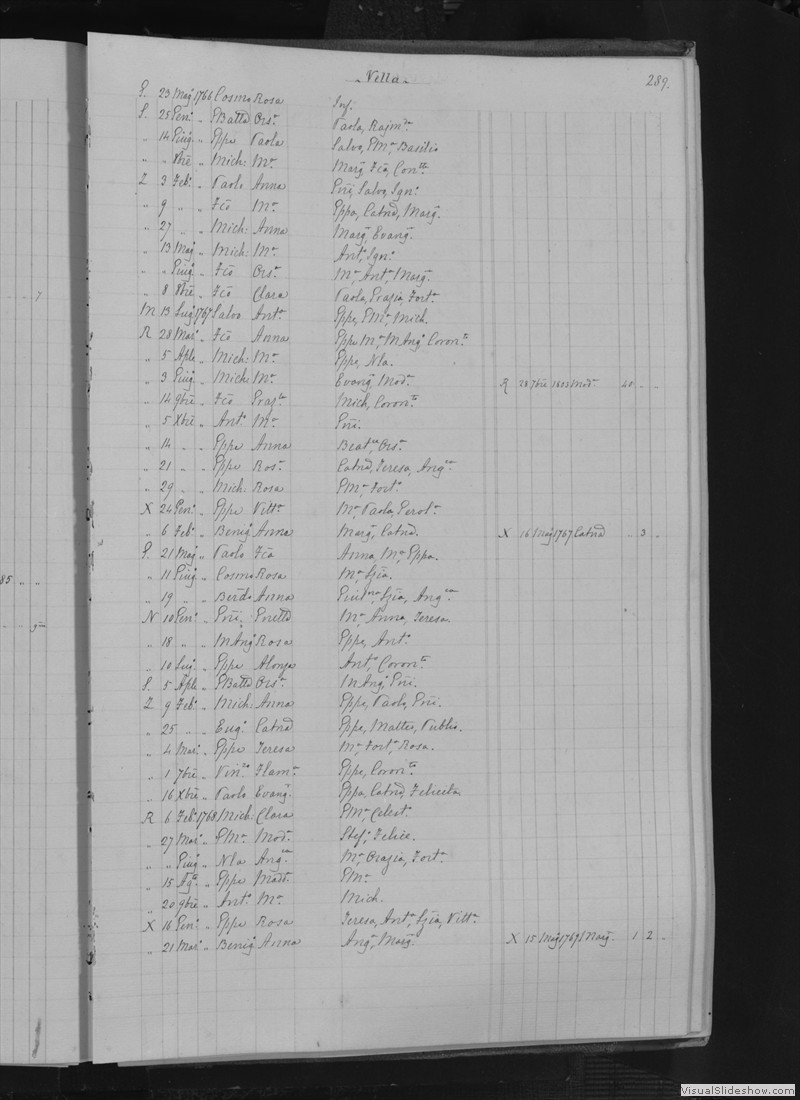 Vella
289.
P. 23 Mag: 1766 Cosmo Rosa Inf.
S. 25 Gen: „ GBatta Ors.a Paola, Rajm.da
„ 14 Giug: „ Gppe Paola Salvo, GM.a Basilio
„ „ Xbre „ Mich: M.a Marg. Fco, Con.tta
Z 3 Feb: „ Paolo Anna Gni, Salvo, Ign.o
„ 9 „ „ Fco M.a Gppa, Catnd, Marg.
„ 27 „ „ Mich: Anna Marg, Evang.
„ 13 Mag: „ Mich: M.a Ant.o Ign.o
„ „ Giug: „ Fco Ors.a M.a Ant.a, Marg.
„ 8 Xbre „ Fco Clara Paola, Grazia, Fort.a
M 13 Lug: 1767 Salvo Ant.a Gppe, GM.a, Mich.
R 28 Mar: „ Fco Anna Gppe M.a, M Ang.o Coron.ta
„ 5 Aple „ Mich: M.a Gppe, Nla.
„ 3 Giug: „ Mich: M.a Evang. Mod.a R 28 7bre Mod.a 40 „ „
„ 14 9bre „ Fco Graz.la Mich, Coron.ta
„ 5 Xbre „ Ant.o M.a Gni.
„ 14 „ „ Gppe Anna Beat.ce, Ors.a
„ 21 „ „ Gppe Ros.a Catnd, Teresa, Ang.ca
„ 29 „ „ Mich: Rosa GM.a, Fort.a
X 24 Gen: „ Gppe Vitt.a M.a, Paola, Gerol.a
„ 6 Feb: „ Benig: Anna Marg, Catnd. X 16 Mag 1767 Catnd „ 3 „
P. 21 Mag: „ Paolo Fca Anna, M.a, Gppa.
„ 11 Giug: „ Cosmo Rosa M.a, Lzia.
„ 19 „ „ Berdo Anna Lzia, Ang.ca
N 10 Gen: „ Gni. Gnetta M.a, Anna, Teresa.
„ 18 „ „ M Ang: Rosa Gppe, Ant.o
„ 10 Lug: „ Gppe Alonza Ant.o, Coron.ta
S. 5 Aple „ GBatta Ors.a M Ang.o Gni.
Z 9 Feb: „ Mich: Anna Gppe, Paolo, Gni.
„ 25 „ „ Eug.o Catnd Gppe, Matteo, Publio.
„ 4 Mar: „ Gppe Teresa M.a, Fort.a, Rosa.
„ 1 7bre „ Vin.zo Flam.a Gppe, Coron.ta
„ 16 Xbre „ Paolo Evang. Gppa, Catnd, Felicita.
R 6 Feb: 1768 Mich: Clara GM.a, Celest.o
„ 27 Mar: „ GM.a Mod.a Stef.o Felice.
„ „ Giug: „ Nla Ang.ca M.a, Grazia, Fort.a
„ 15 Ag.to „ Gppe Madd.a GM.a
„ 20 9bre „ Ant.o M.a Mich.
X 16 Gen: „ Gppe Rosa Teresa, Ant.a, Lzia, Vitt.a
„ 21 Mar: „ Benig: Anna Ang.a, Marg. X 15 Mag 1769 Marg. 1 2 „
7
85 „ „
VisualSlideshow.com